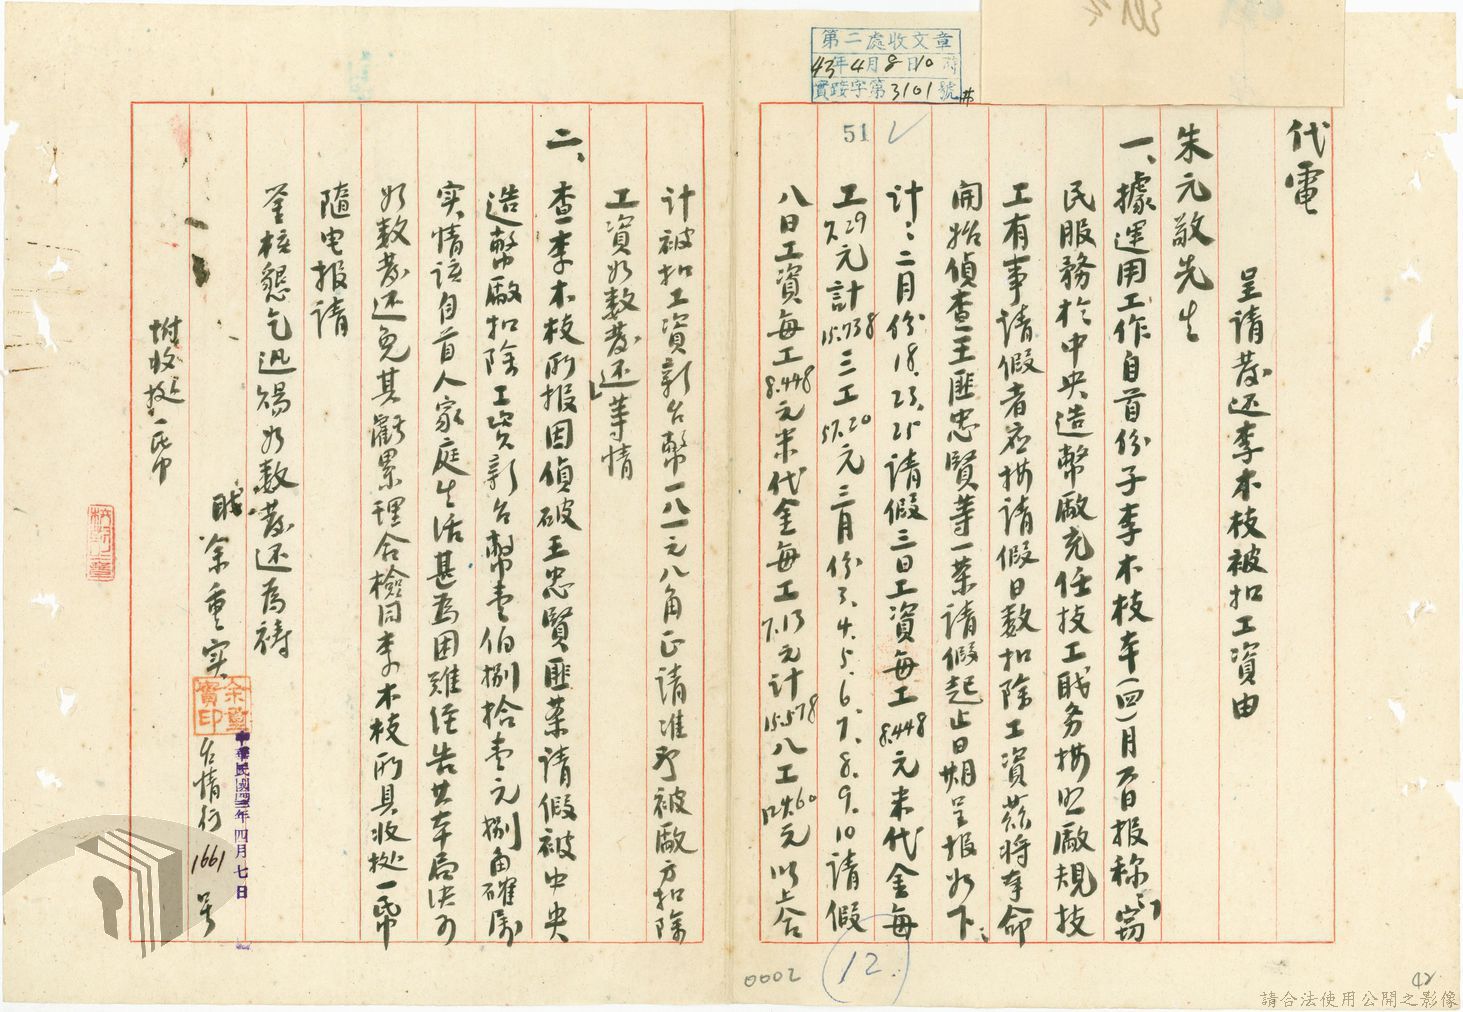 第二處收文章
43年4月8日10時
實踐字第3101號
51
代電
呈請發还李木枝被扣工資由
朱元敬先生
一、據運用工作自首份子李木枝本(四)月一百日报称:「窃
民服務於中央造幣廠充任技工職务按照廠規技
工有事請假者应按請假日数扣除工資茲将奉命
開始偵查王匪忠賢等一案請假起止日期呈报如下:
計:二月份18.23.25請假三日工資每工8.448元米代金每
工7.29元計15.738三工57.20元三月份3.4.5.6.7.8.9.10請假
八日工資每工8.448元米代金每工7.13元計15.578八工124.60元以上合
計被扣工資新台幣一八一元八角正請准予被廠方扣除
工資如数發还」等情
二、查李木枝所报因偵破王忠賢匪案請假被中央
造幣廠扣除工資新台幣壹佰捌拾壹元捌角確属
实情該自首人家庭生活甚為困难经告其本局决予
如数發还免其虧累理合檢同李木枝所具收據一帋
隨电报請
鉴核懇乞迅賜如数發还為禱
職余重实
余重實印
台情行1661号
中華民國四三年四月七日
附收據一帋
0002
12.
42
請合法使用公開之影像